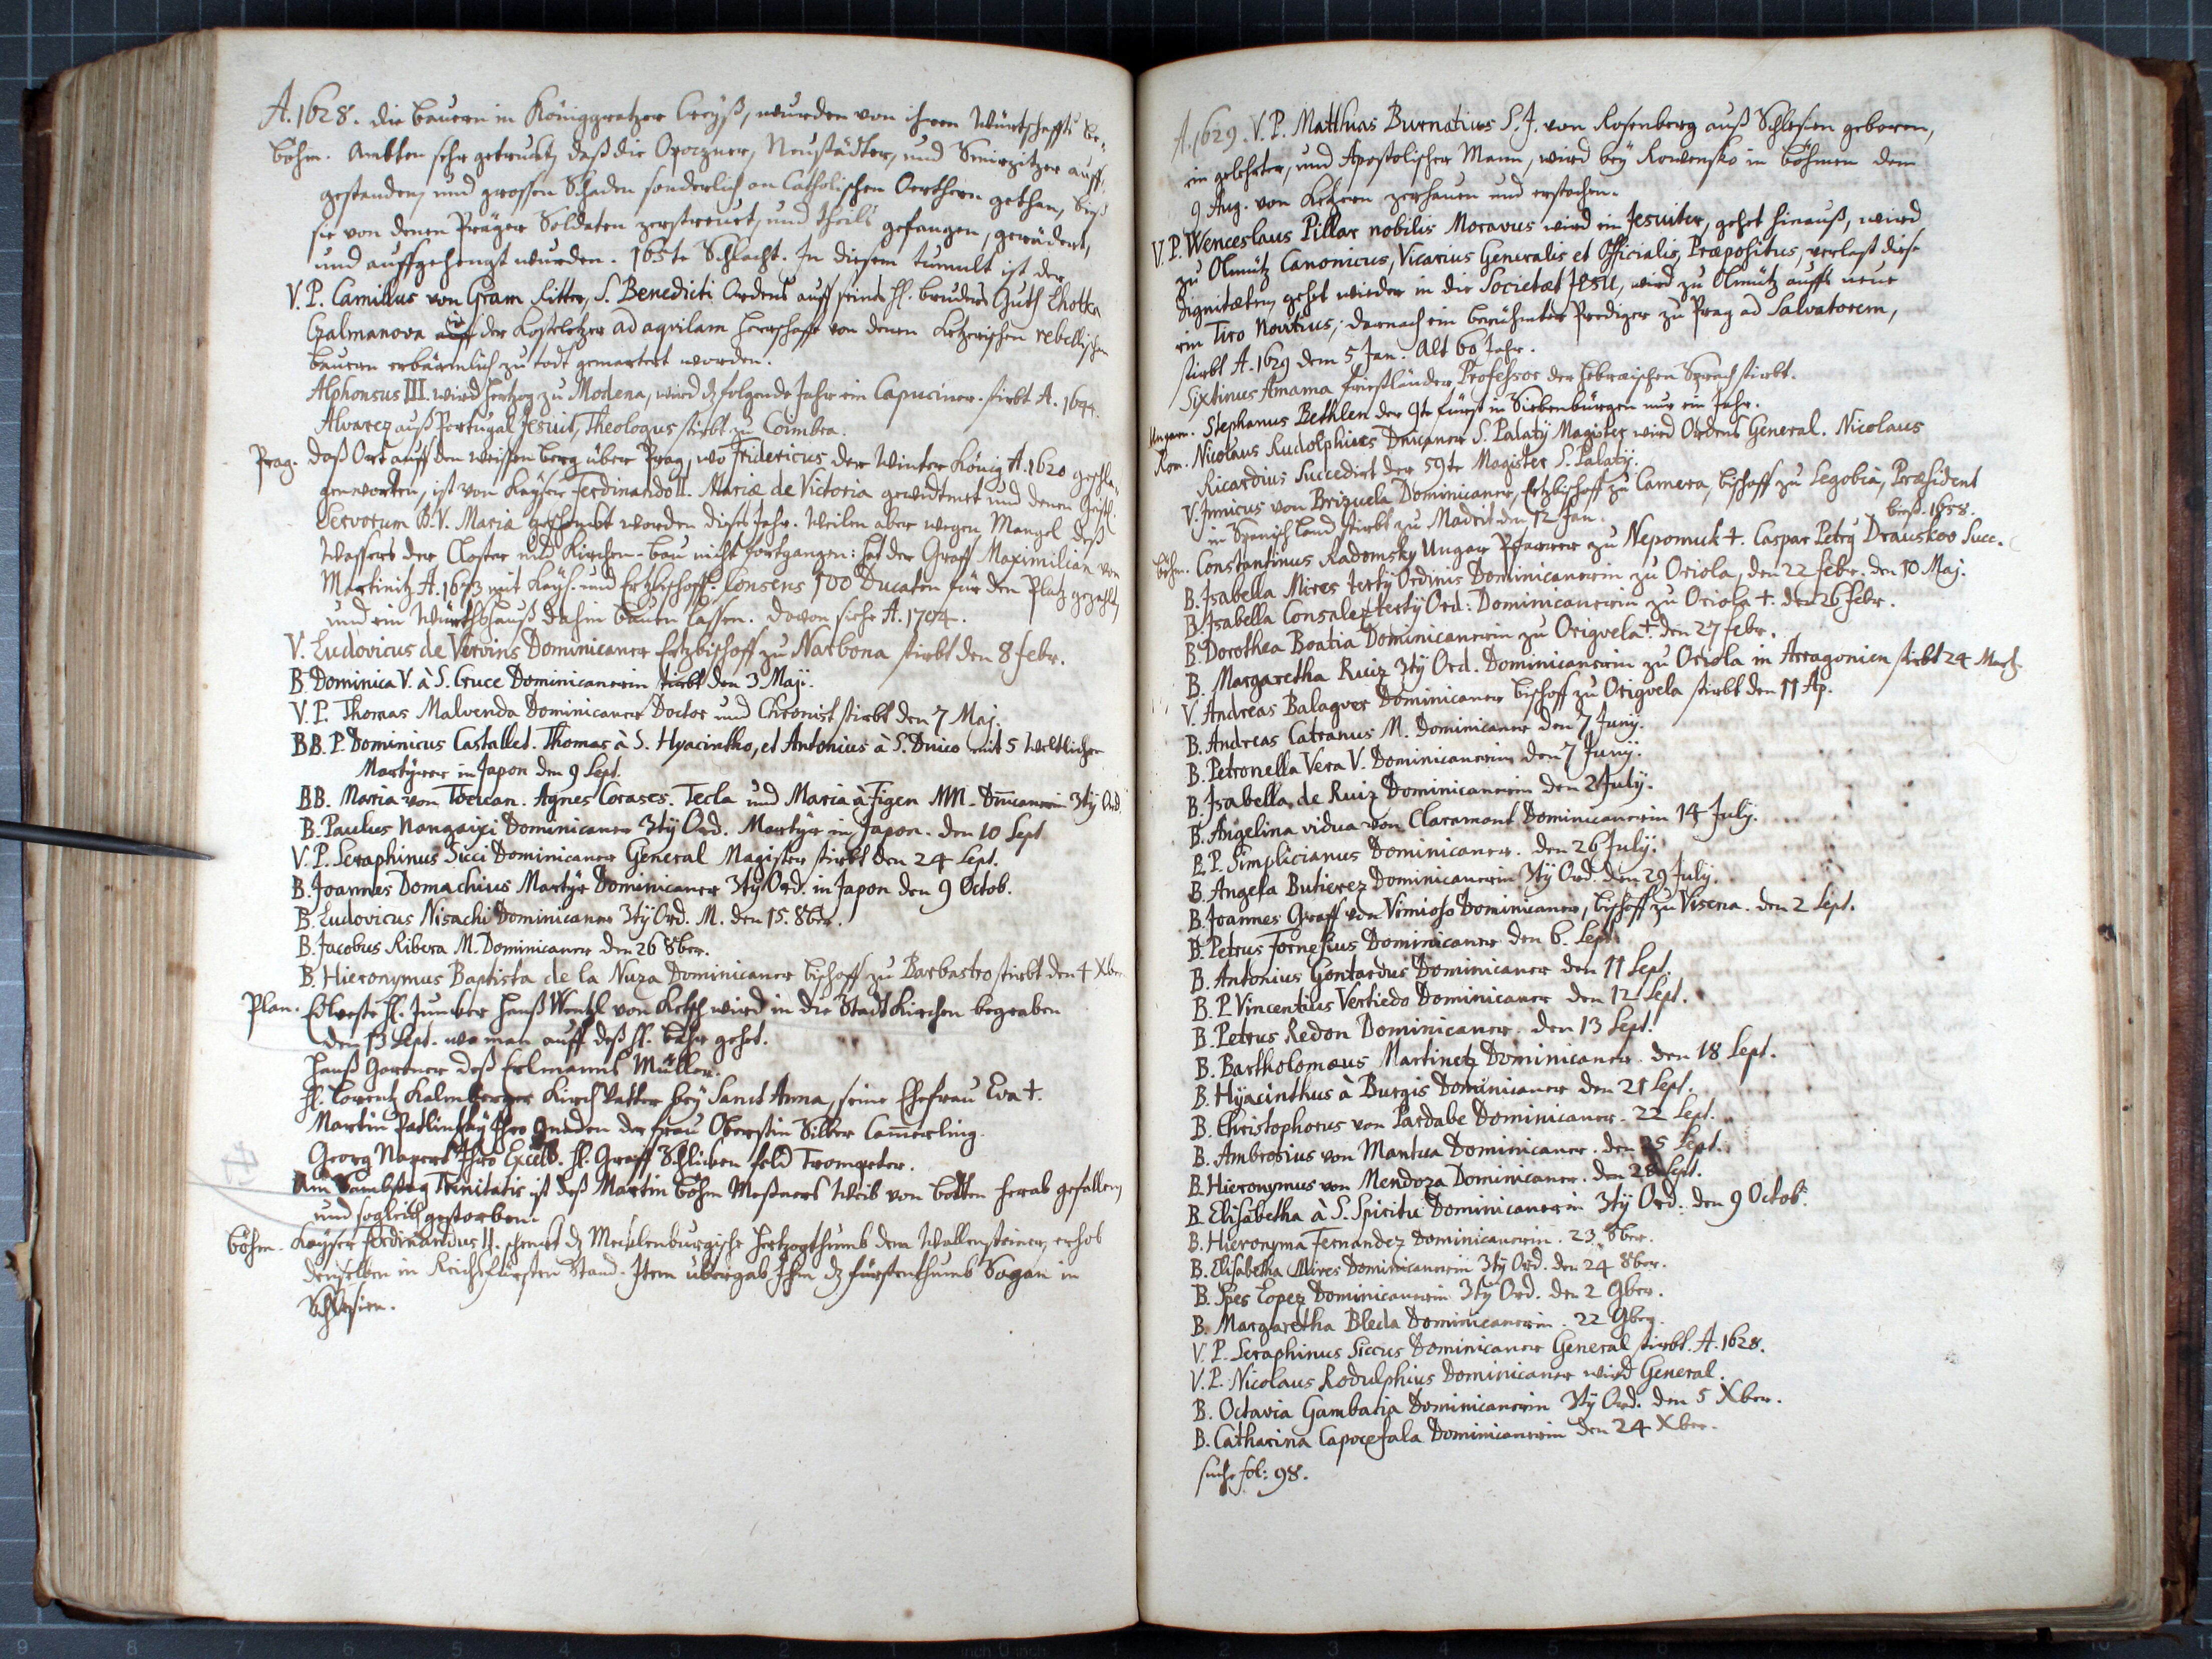 A. 1628. die bauern in Königgratzer Creyß, wurden von ihren Würtschaffts be-
böhm. Ambten sehr getruckt, daß die Opoczner, Neustädter, und Smirzitzer auff-
gestanden, und grossen Schaden sonderlich an Catholischen Oerthern gethan, biß
sie von denen Präger Soldaten zerstreuet, und theils gefangen, gerädert,
und auffgehengt wurden. 163te Schlacht. In diesem tumult ist der
V. P. Camillus von Gram Ritter, S. Benedicti Ordens auff seines H. bruders Guth Lhotka
Czalmanova in der Kosteletzer ad aquilam herrschafft von denen Ketzerischen rebellischen
bauern erbärmlich zu todt gemartert worden.
Alphonsus III. wird hertzog zu Modena, wird dz folgende Jahr ein Capuciner. stirbt A. 1644.
Alvarez auß Portugal Jesuit, Theologus stirbt zu Coimbra.
Prag. daß Ort auff den weissen berg über Prag, wo Fridericus der Winter König A. 1620 geschla-
gen worden, ist von Kayser Ferdinando II. Mariæ de Victoria gewidmet und denen Geistl.
Servorum B. V. Mariæ geschenckt worden dieses Jahr. Weilen aber wegen Mangel deß
Wassers der Closter und Kirchen-bau nicht fortgangen: hat der Graff Maximilian von
Martinitz A. 1673 mit Kays. und Ertzbischoffl. Consens 100 Ducaten für den Platz gezahlt,
und ein Würthshauß dahin bauen lassen. davon siehe A. 1704.
V. Ludovicus de Vervins Dominicaner Ertzbischoff zu Narbona stirbt den 8 febr.
B. Dominica V. à S. Cruce Dominicanerin stirbt den 3 Maji.
V. P. Thomas Malvenda Dominicaner Doctor und Chronist stirbt den 7 Maj.
BB. P. Dominicus Castallet. Thomas à S. Hyacintho, et Antonius à S. Dnico mit 5 Weltlichen
Martyrer in Japon den 9 Sept.
BB. Maria von Toucan. Agnes Corases. Tecla und Maria à Figen MM. Dnicanerin 3tÿ Ord.
B. Paulus Nangaixi Dominicaner 3tÿ Ord. Martyr in Japon. den 10 Sept
V. P. Seraphinus Sicci Dominicaner General Magister stirbt den 24 Sept.
B. Joannes Domachius Martyr Dominicaner 3tÿ Ord. in Japon den 9 Octob.
B. Ludovicus Nisachi Dominicaner 3tÿ Ord. M. den 15. 8ber.
B. Jacobus Ribera M. Dominicaner den 26 8ber.
B. Hieronymus Baptista de la Nuza Dominicaner bischoff zu Barbastro stirbt den 4 Xber
Plan. Edlveste H. Juncker Hanß Wentzl von wird in die Stadt Kirchen begraben
den 13 Sept. wo man auff deß H. gehet.
Hanß Gartner deß Erlmanns Müller.
H. Lorentz Kalmberger Kirch Vatter beÿ Sanct Anna, seine Ehefrau Eva †.
Martin Ihro Gnaden der frau Obristin Silber Cam̄erling.
Georg Ihro Excell. H. Graff Schlicken feld Trompeter.
Am Sambstag Trinitatis ist deß Martin böhm Meßners Weib von boden herab gefallen,
und sogleich gestorben.
böhm. Kayser Ferdinandus II. schenckt dz Mechlenburgische Hertzogthumb dem Wallensteiner, erhob
denselben in Reichsfürsten Stand. Item übergab Ihm dz fürstenthumb Sagan in
Schlesien.
A. 1629. V. P. Matthias Burnatius S. J. von Rosenberg auß Schlesien geboren,
ein gelehrter, und Apostolischer Mann, wird beÿ Rowensko in böhmen den
9 Aug. von Ketzern zerhauen und erstochen.
V. P. Wenceslaus Pillar nobilis Moravus wird ein Jesuiter, gehet hinauß, wird
zu Olmütz Canonicus, Vicarius Generalis et Officialis, Præpositus, verlast diese
dignitæten, gehet wieder in die Societæt Jesu, wird zu Olmütz auffs neue
ein Tiro Novitius, darnach ein berühmter Prediger zu Prag ad Salvatorem,
stirbt A. 1629 den 5 Jan. Alt 60 Jahr.
Sixtinus Amama frießländer Professor der hebræischen Sprach stirbt.
Ungarn. Stephanus Bethlen der 9te fürst in Siebenbürgen nur ein Jahr.
Rom. Nicolaus Rudolphius Dnicaner S. Palatÿ Magister wird Ordens General. Nicolaus
Ricardius Succedirt der 59te Magister S. Palatÿ.
V. Innicus von Brizuela Dominicaner, Ertzbischoff zu Camera, bischoff zu Segobia, Præsident
in Spanisch land stirbt zu Madrit den 12 Jan.
biß. 1658.
böhm. Constantinus Radomsky Ungar Pfarrer zu Nepomuk †. Caspar Petrÿ Drauskoo Succ.
B. Isabella Mires tertÿ Ordinis Dominicanerin zu Oriola, den 22 febr. den 10 Maj.
B. Isabella Consalez tertÿ Ord: Dominicanerin zu Oriola †. den 26 febr.
B. Dorothea Boatia Dominicanerin zu Origuela †. den 27 febr.
B. Margaretha Ruiz 3tÿ Ord. Dominicanerin zu Oriola in Arragonien stirbt 24 Mart.
V. Andreas Balaguer Dominicaner bischoff zu Origuela stirbt den 11 Ap.
B. Andreas Catranus M. Dominicaner den 7 Junÿ.
B. Petronella Vera V. Dominicanerin den 7 Junÿ.
B. Isabella de Ruiz Dominicanerin den 2 Julÿ.
B. Angelina vidua von Claramont Dominicanerin 14 Julÿ.
B. P. Simplicianus Dominicaner. den 26 Julÿ.
B. Angela Butierez Dominicanerin 3tÿ Ord. den 29 Julÿ.
B. Joannes Graff von Vimioso Dominicaner, bischoff zu Visena. den 2 Sept.
B. Petrus Fornesius Dominicaner den 6. Sept.
B. Antonius Gontardus Dominicaner den 11 Sept.
B. P. Vincentius Vertiedo Dominicaner den 12 Sept.
B. Petrus Redon Dominicaner. den 13 Sept.
B. Bartholomæus Martinetz Dominicaner. den 18 Sept.
B. Hÿacinthus à Burgis Dominicaner den 21 Sept.
B. Christophorus von Pardabe Dominicaner. 22 Sept.
B. Ambrosius von Mantua Dominicaner. den 25 Sept.
B. Hieronymus von Mendoza Dominicaner. den 28 Sept.
B. Elisabetha à S. Spiritu Dominicanerin 3tÿ Ord. den 9 Octob.
B. Hieronyma Fernandez Dominicanerin. 23. 8ber.
B. Elisabetha Mires Dominicanerin 3tÿ Ord. den 24 8ber.
B. Spes Lopez Dominicanerin 3tÿ Ord. den 2 9ber.
B. Margaretha Bleda Dominicanerin. 22 9ber.
V. P. Seraphinus Siccus Dominicaner General stirbt. A. 1628.
V. P. Nicolaus Rodulphius Dominicaner wird General.
B. Octavia Gambaria Dominicanerin 3tÿ Ord. den 5 Xber.
B. Catharina Capocefala Dominicanerin den 24 Xber.
suche fol: 98.